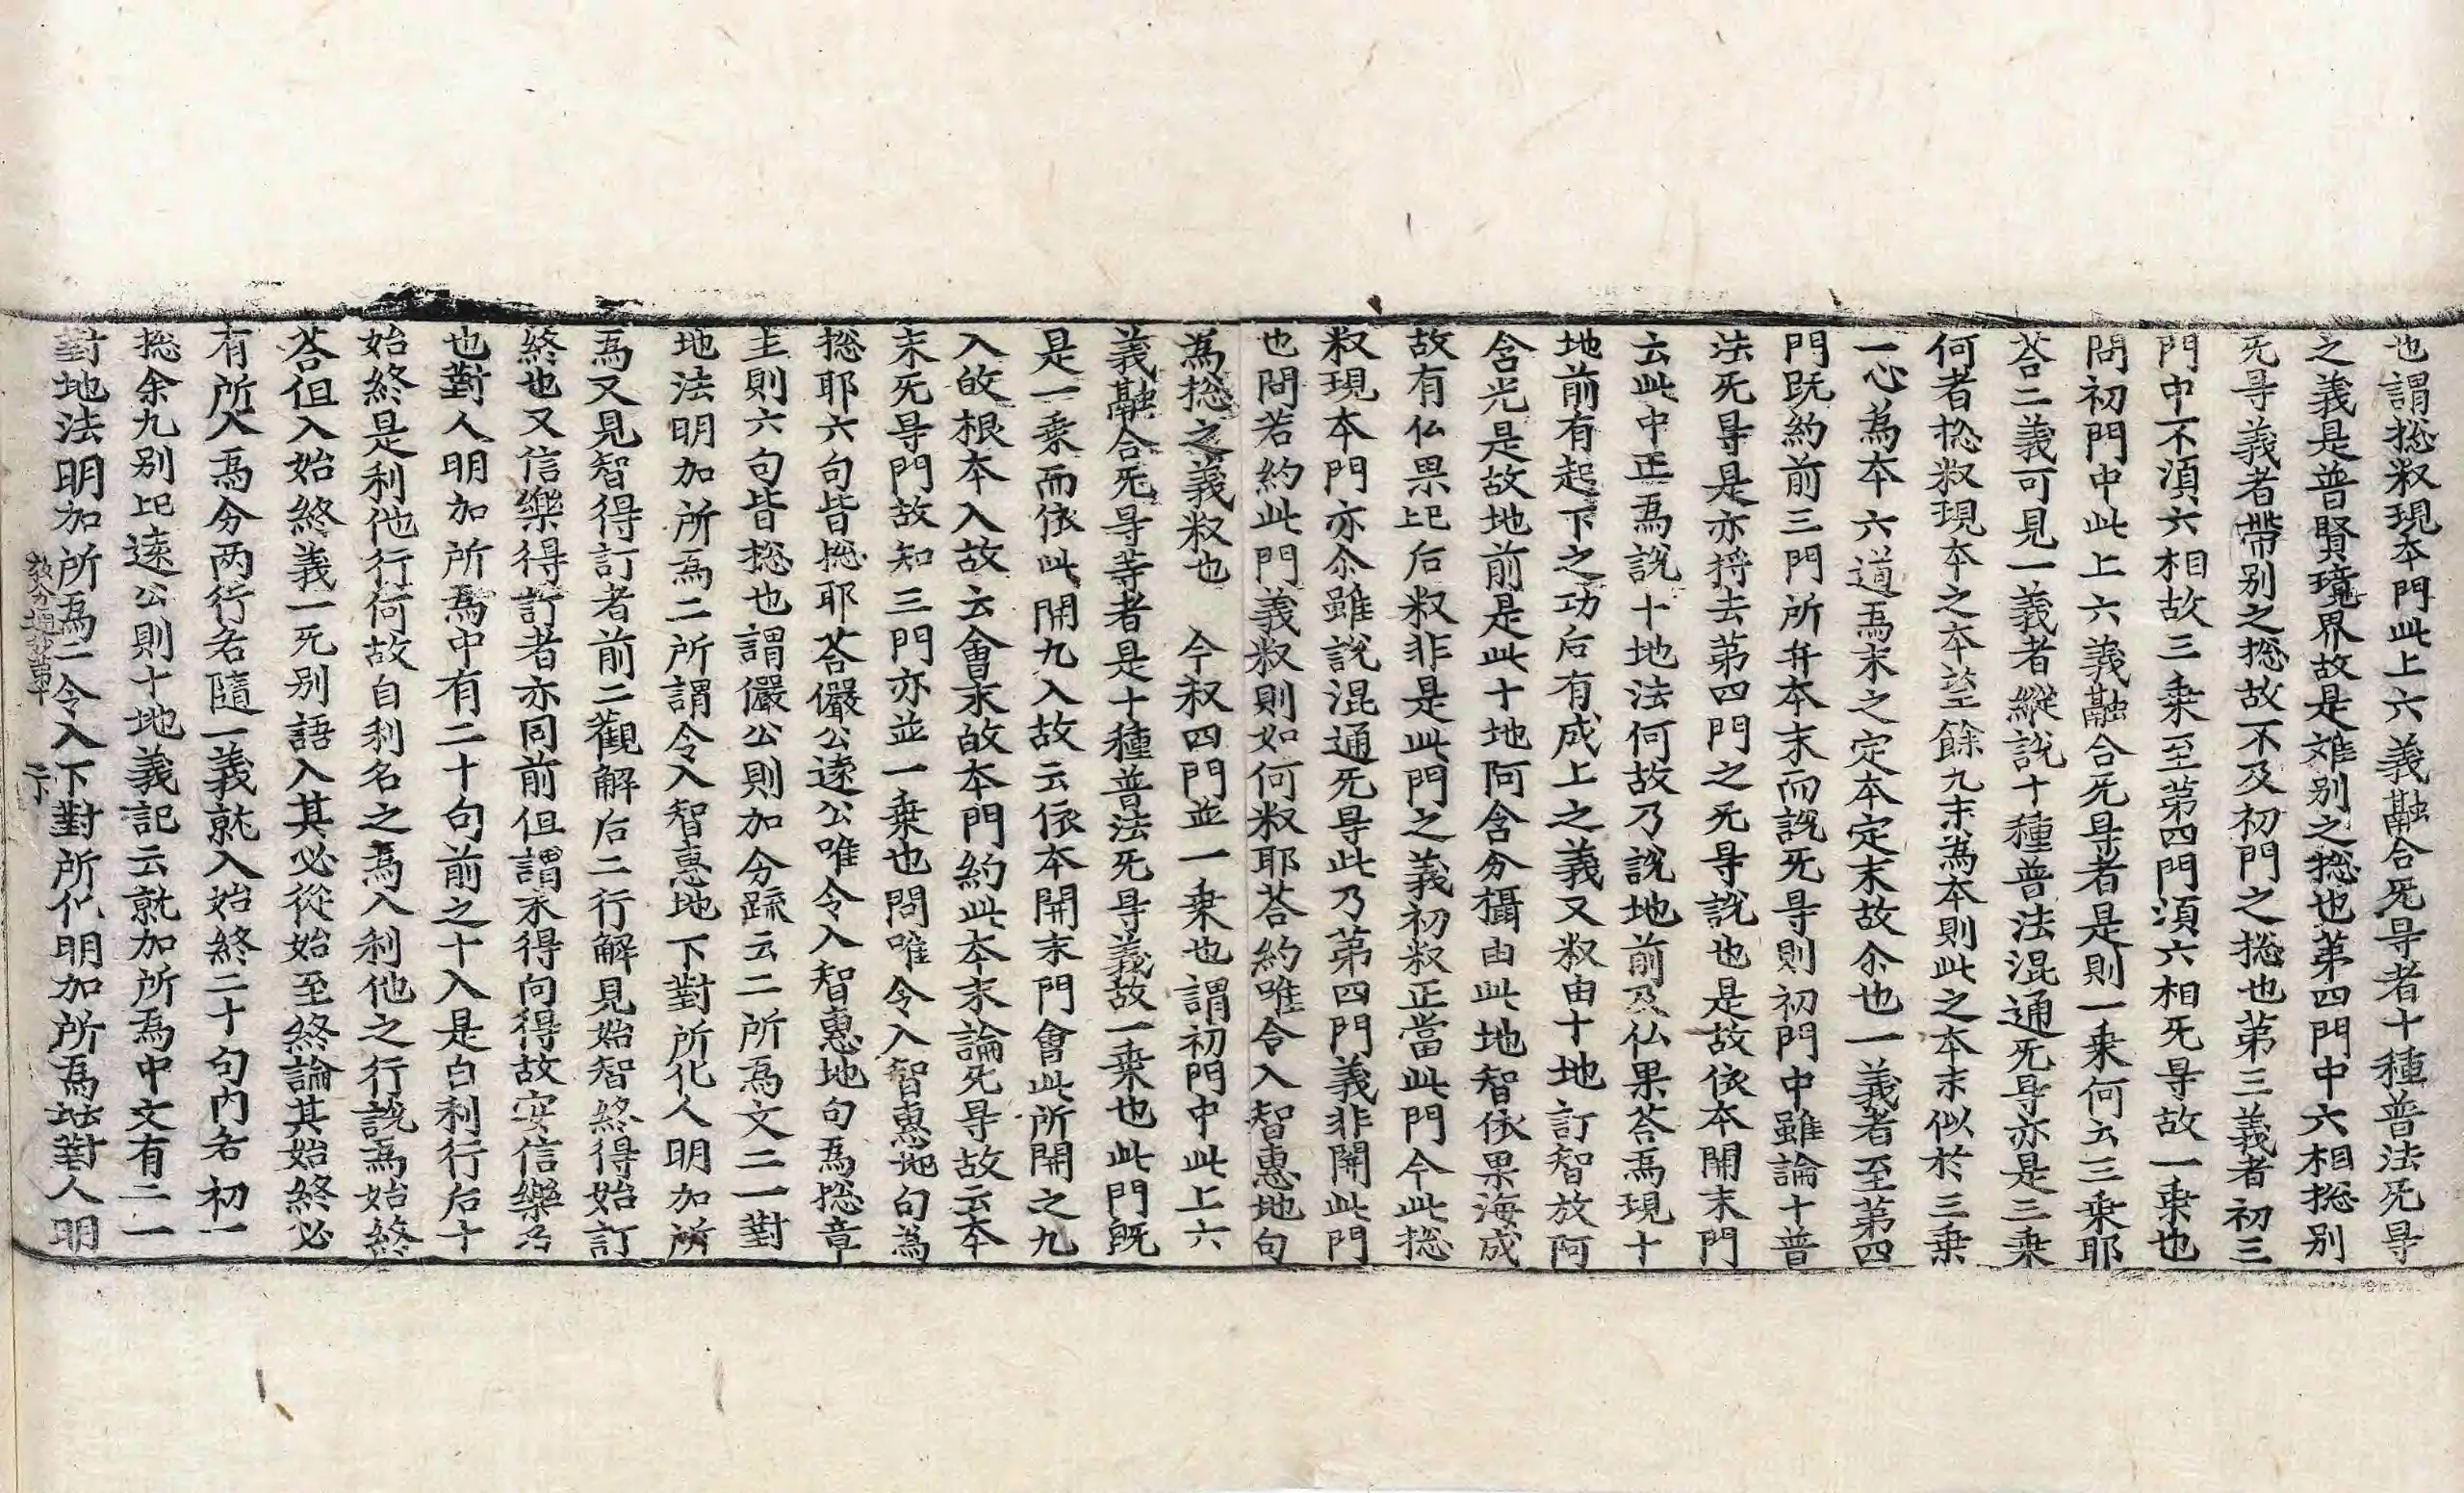 也謂揔䆁現本門此上六義融合旡㝵者十種普法旡㝵
之義是普賢境界故是难别之揔也苐四門中六相揔别
旡㝵義者帶别之揔故不及初門之揔也苐三義者初三
門中不湏六相故三乗至苐四門湏六相旡㝵故一乗也
問初門中此上六義融合旡㝵者是則一乗何云三乗耶
荅二義可見一義者縱說十種普法混通旡㝵亦是三乗
何者揔䆁現本之本望餘九末為本則此之本末似於三乗
一心為本六道爲末之定本定末故尒也一義者至苐四
門旣約前三門所弁本末而說旡㝵則初門中雖論十普
法旡㝵是亦捋去苐四門之旡㝵說也是故依本開末門
云此中正爲說十地法何故乃說地前及仏果荅爲現十
地前有起下之功后有成上之義又䆁由十地訂智放阿
含光是故地前是此十地阿含分攝由此地智依果海成
故有仏果㠯后䆁非是此門之義初䆁正當此門今此揔
䆁現本門亦尒雖說混通旡㝵此乃苐四門義非開此門
也問若約此門義䆁則如何䆁耶荅約唯令入智惠地句
為揔之義䆁也　今䆁四門並一乗也謂初門中此上六
義融合旡㝵䓁者是十種普法旡㝵義故一乗也此門旣
是一乗而依此開九入故云依本開末門會此所開之九
入㱕根本入故云會末㱕本門約此本末論旡㝵故云本
末旡㝵門故知三門亦並一乗也問唯令入智惠地句為
揔耶六句皆揔耶荅儼公遠公唯令入智惠地句爲揔章
主則六句皆揔也謂儼公則加分䟽云二所爲文二一對
地法明加所爲二所謂令入智惠地下對所化人明加所
爲又見智得訂者前二觀解后二行解見始智終得始訂
終也又信樂得訂者亦同前但謂求得向得故安信樂乃
也對人明加所爲中有二十句前之十入是自利行后十
始終是利他行何故自利名之爲入利他之行說爲始終
荅但入始終義一旡别語入其必從始至終論其始終必
有所入爲分两行名隨一義就入始終二十句內名初一
揔余九别㠯遠公則十地義記云就加所爲中文有二一
對地法明加所爲二令入下對所化明加所爲對人明